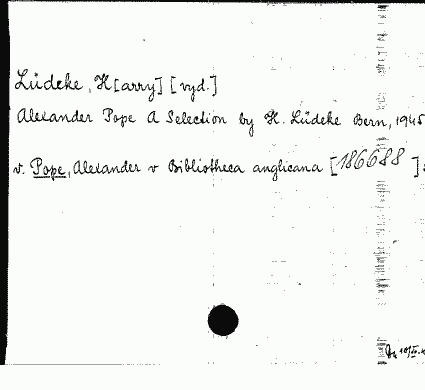 Lüdeke, H[arry] [vyd.]
Alexander Pope A Selection by H. Lüdeke Bern, 1945
v. Pope, Alexander v Bibliotheca anglicana [186688]